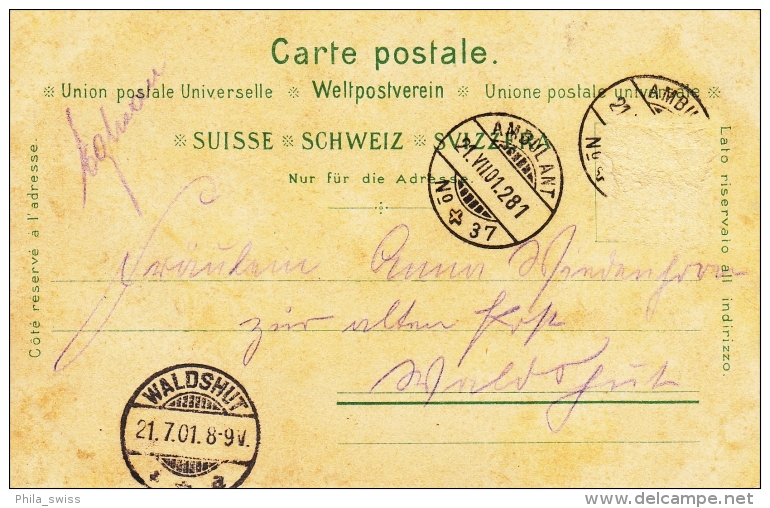 Carte postale.
※ Union postale Universelle ※ Weltpostverein ※ Unione postale universale ※
※ SUISSE ※ SCHWEIZ ※ SVIZZERA
Nur für die Adresse.
Côté réservé à l'adresse.
Lato riservato all indirizzo.
AMBULANT
21.VII01.281
No 37
AMBU
21.
No
Fräulein Anna
zur alten Post
Waldshut
WALDSHUT
21.7.01.8-9V.
a
Phila_swiss
delcampe.net